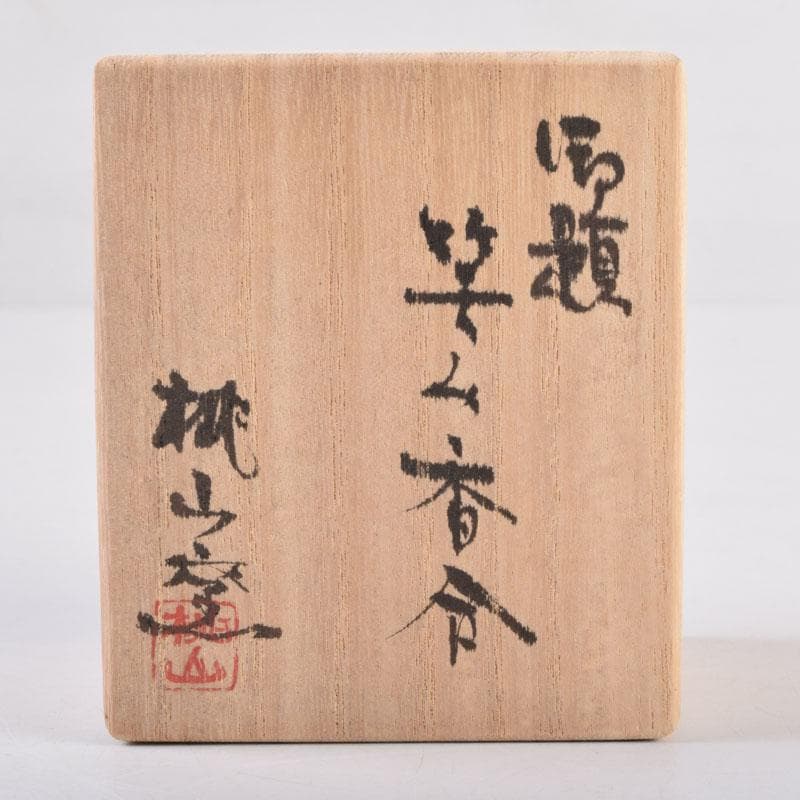 御題
笑み香合
桃山窯
桃山